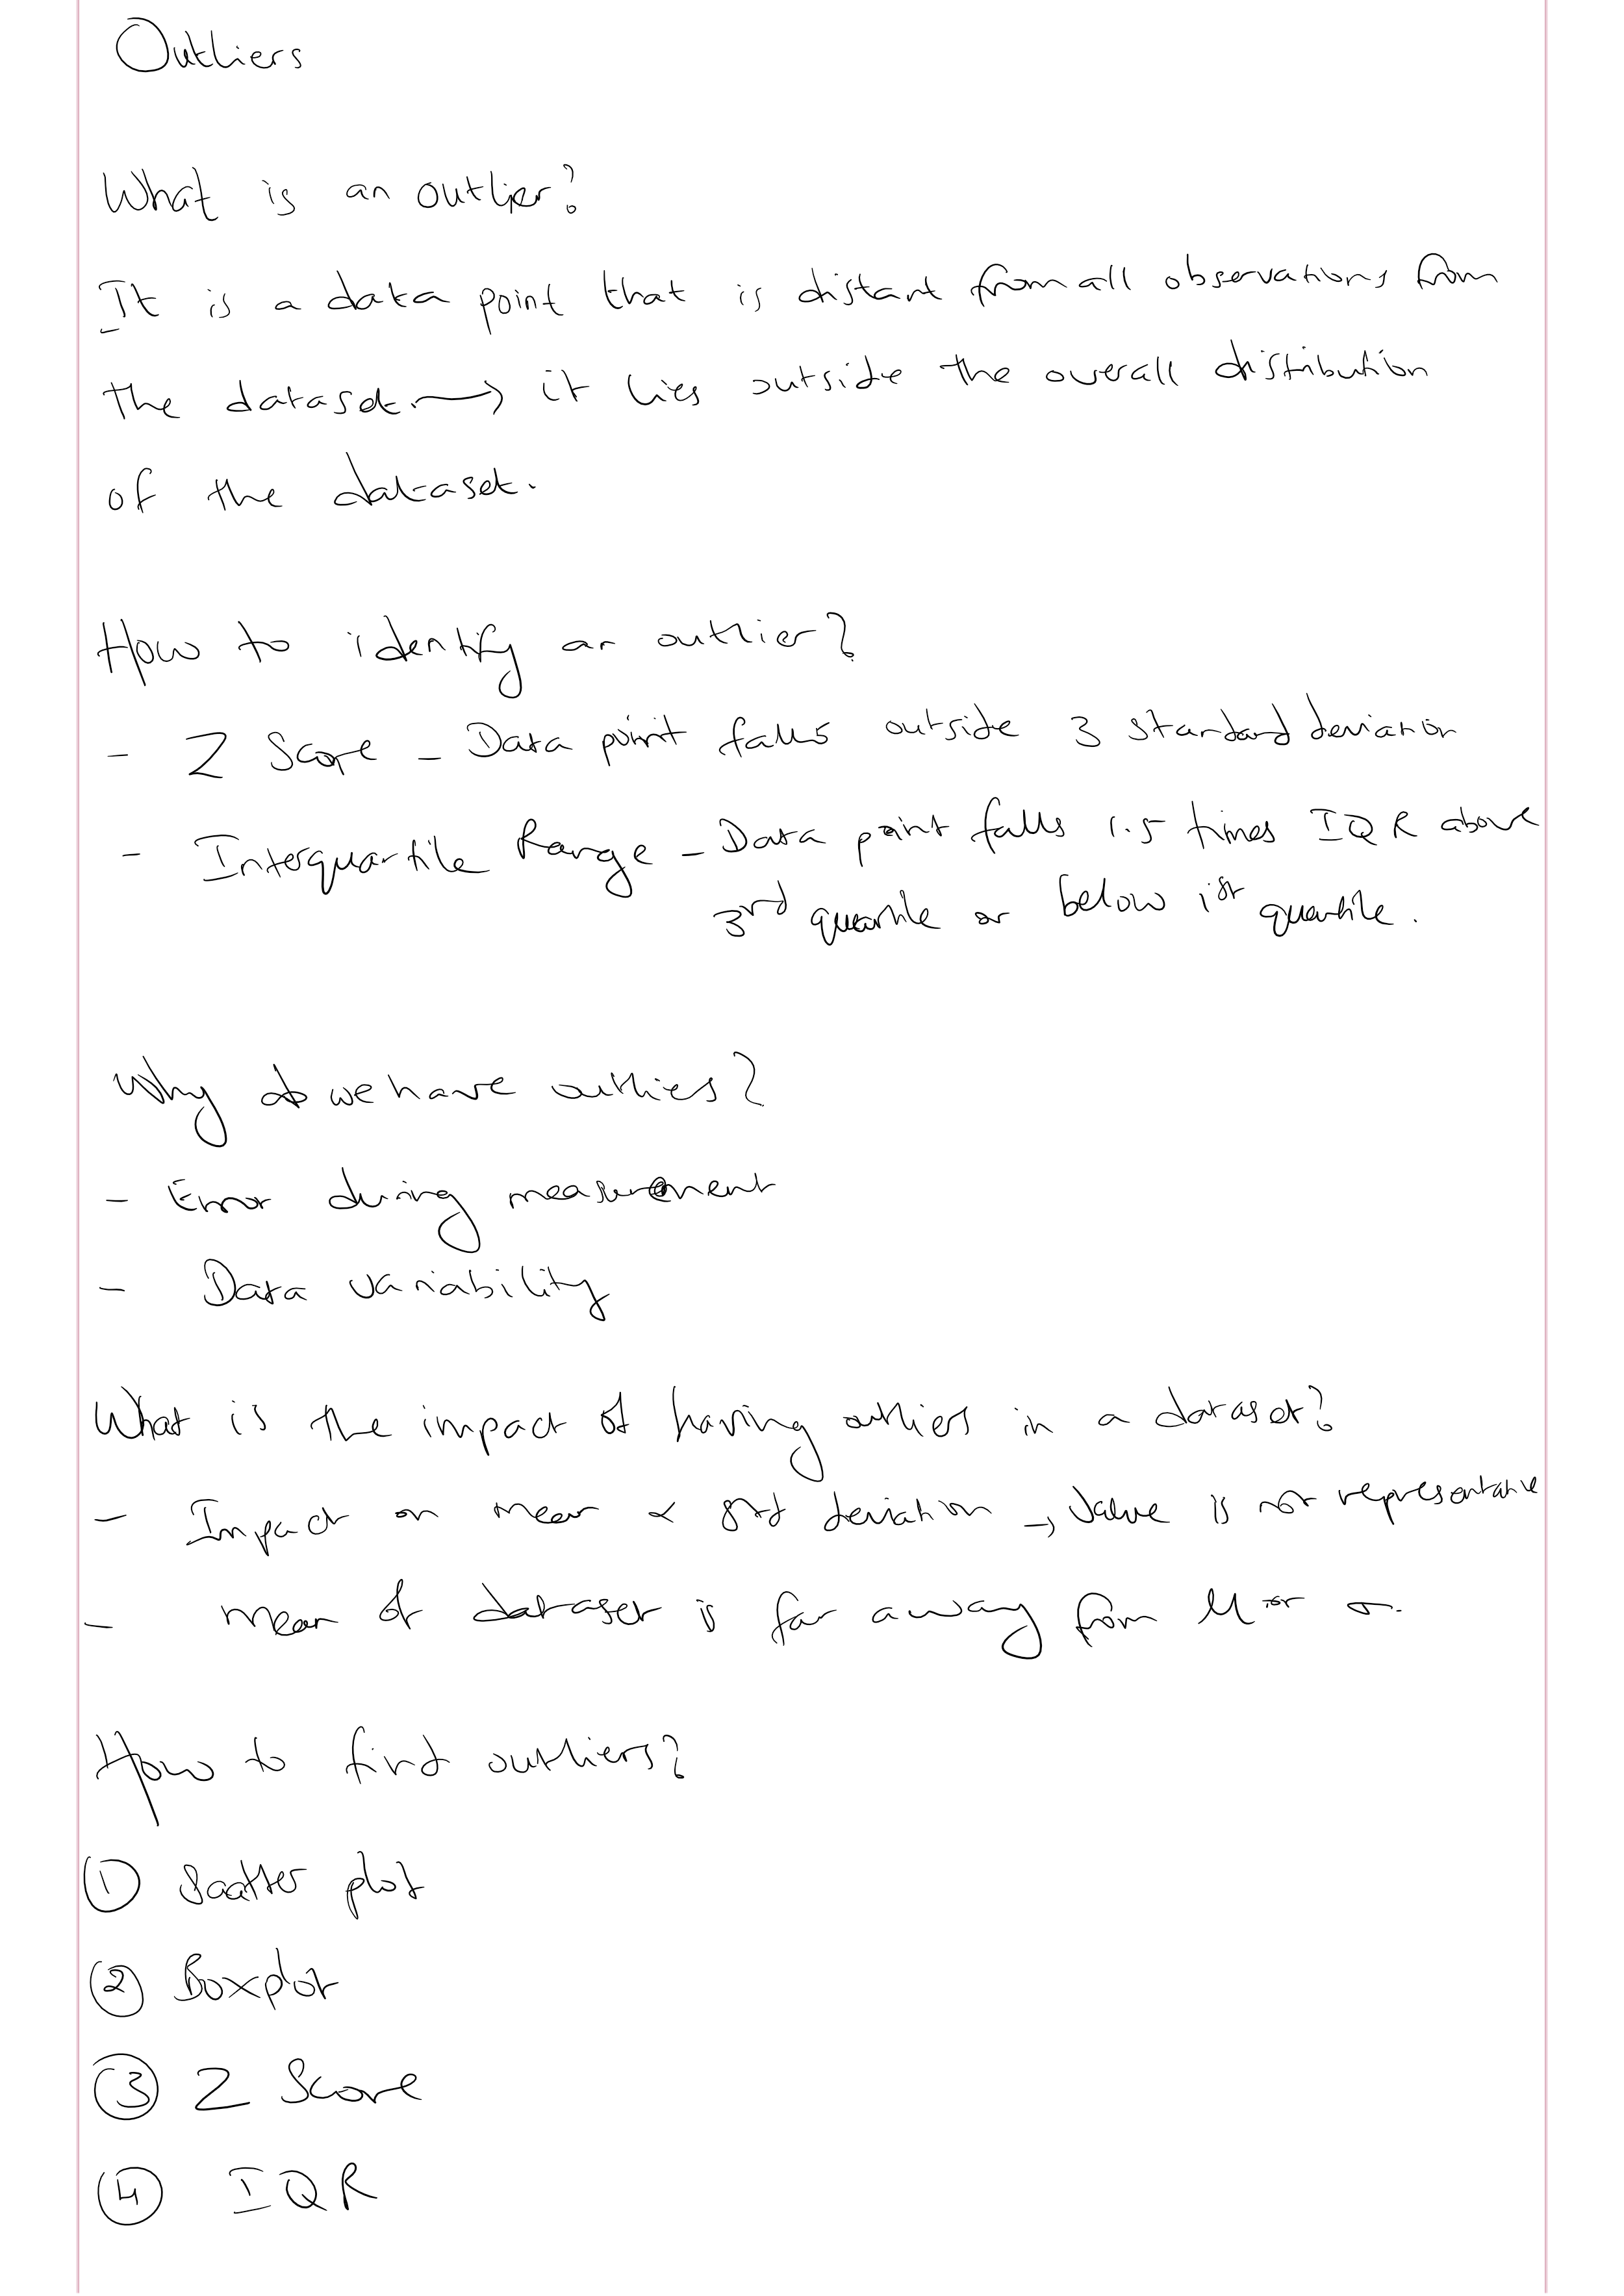 Outliers
What is an outlier?
It is a data point that is distant from all observations from
the dataset. → it lies outside the overall distribution
of the dataset.
How to identify an outlier?
- Z Score - Data point falls outside 3 standard deviation
- Interquartile Range - Data point falls 1.5 times IQR above
3rd quartile or below 1st quartile.
Why do we have outliers?
- Error during measurement
- Data variability
What is the impact of having outliers in a dataset?
- Impact on mean & std deviation → Value is not representative
- Mean of dataset is far away from μ or σ.
How to find outliers?
① Scatter plot
② Boxplot
③ Z Score
④ IQR